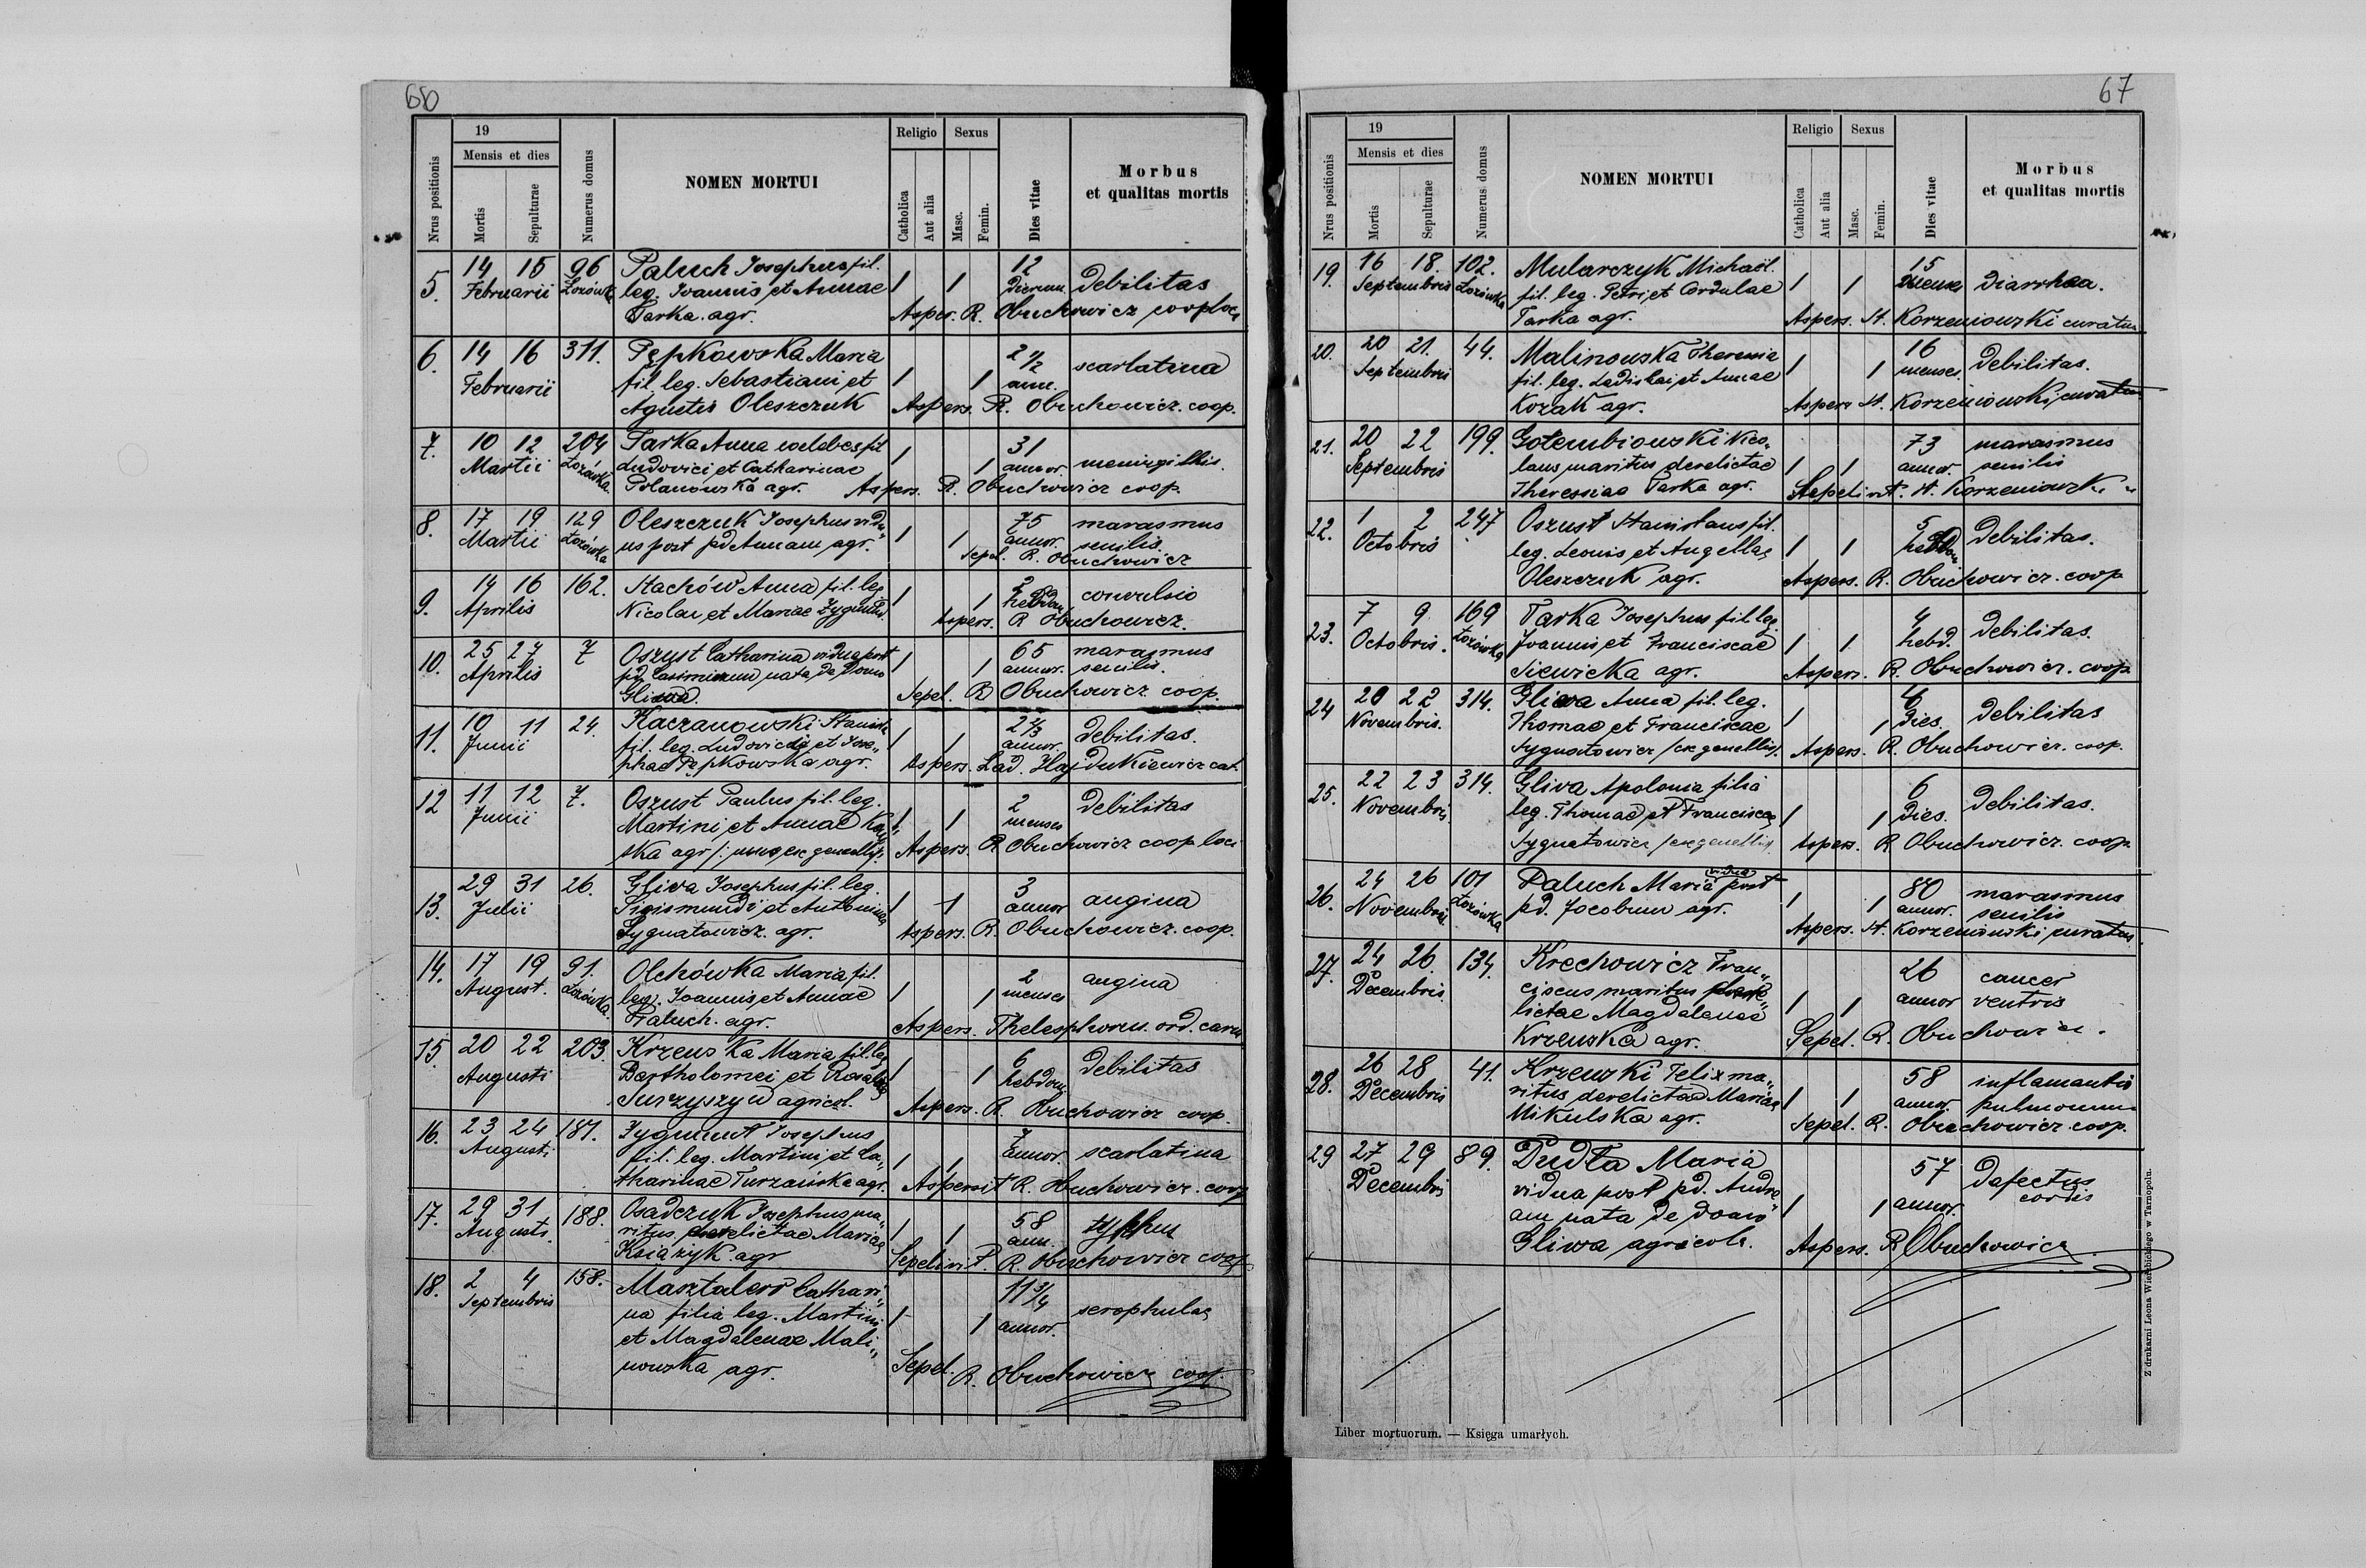 66
19
Religio Sexus
Mensis et dies
Nrus positionis
Mortis
Sepulturae
Numerus domus
NOMEN MORTUI
Catholica
Aut alia
Masc.
Femin.
Dies vitae
Morbus
et qualitas mortis
5. 14 15 96 Paluch Josephus fil. 12
Februarii Łozówka leg. Joannis et Annae 1 1 dierum debilitas
Tarka agr. Aspers. R. Obuchowicz coop loci
6. 14 16 311. Pępkowska Maria 2 1/2 scarlatina
Februarii fil. leg. Sebastiani et 1 1 ann.
Agnetis Oleszczuk Aspers. R. Obuchowicz. coop.
7. 10 12 204 Tarka Anna coelebs fil 1 31
Martii Łozówka Ludovici et Catharinae 1 annor. meningitis.
Polanowska agr. Aspers. R. Obuchowicz coop.
8. 17 19 129 Oleszczuk Josephus vidu 75 marasmus
Martii Łozówka us post pd Annam agr. 1 1 annor. senilis.
Sepel. R. Obuchowicz
9. 14 16 162. Stachów Anna fil. leg 1 2 convulsio
Aprilis Nicolai et Mariae Zygmunt. 1 hebdom
Aspers. R Obuchowicz.
10. 25 27 7 Oszust Catharina vidua post 1 65 marasmus
Aprilis pd Casimirum nata de domo 1 annor. senilis.
Gliwa. Sepel. R Obuchowicz coop.
11. 10 11 24. Kaczanowski Stanisl 2 4/3
Junii fil. leg. Ludovici et Jose„ 1 1 annor. debilitas.
phae Pępkowska agr. Aspers. Lad. Hajdukiewicz cat.
12 11 12 7. Oszust Paulus fil. leg. 2 debilitas
Junii Martini et Annae 1 1 menses
ska agr /: unus ex gemellis/. Aspers. R Obuchowicz coop loci
13. 29 31 26. Gliwa Josephus fil. leg. 3
Julii Sigismundi et Antoninae 1 1 annor angina
Sygnatowicz. agr. Aspers. R. Obuchowicz. coop.
14. 17 19 91. Olchówka Maria fil. 2 angina
August. Łozówka. leg. Joannis et Annae 1 1 menses
Paluch. agr. Aspers. Thelesphorus. ord. carm
15 20 22 203. Krzeuska Maria fil. leg 1 6 debilitas
Augusti Bartholomei et Rosaliae 1 hebdom
Surzyszyn agricol. Aspers. R. Obuchowicz coop.
16. 23 24 187. Zygmunt Josephus 7
Augusti fil. leg. Martini et Ca„ 1 1 annor. scarlatina
tharinae Turzańska agr. Aspersit R. Obuchowicz. coop
17. 29 31 188. Osadczuk Josephus ma„ 58 typhus
Augusti. ritus derelictae Mariae 1 1 ann.
Książyk agr Sepelivit. R. Obuchowicz coop
18. 2 4 158. Masztalerz Cathari„ 11 3/4
Septembris na filia leg. Martini 1 1 annor. scrophulae
et Magdalenae Mali„
nowska agr. Sepel. R. Obuchowicz coop.
67
19
Religio Sexus
Mensis et dies
Nrus positionis
Mortis
Sepulturae
Numerus domus
NOMEN MORTUI
Catholica
Aut alia
Masc.
Femin.
Dies vitae
Morbus
et qualitas mortis
19. 16 18. 102. Mularczyk Michaël. 15
Septembris Łozówka fil. leg. Petri et Cordulae 1 1 menses diarrhaea.
Tarka agr. Aspers. St. Korzeniowski curatus
20. 20 21. 44. Malinowska Theresia 16
Septembris fil. leg. Ladislai et Annae 1 1 menses. debilitas.
Kozak agr. Aspers St. Korzeniowski, curatus
21. 20 22 199. Gołembiowski Nico„ 73 marasmus
Septembris laus maritus derelictae 1 1 annor. senilis
Theressiae Tarka agr. Sepelivit. St. Korzeniowski
22. 1 2 247 Oszust Stanislaus fil. 5 debilitas.
Octobris leg. Leonis et Angellae 1 1
Oleszczuk agr. Aspers. R. Obuchowicz. coop
23. 7 9 169 Tarka Josephus fil leg 4
Octobris. Łozówka Joannis et Franciscae 1 1 hebd. debilitas.
Siewicka agr. Aspers. R. Obuchowicz. coop
24 20 22 314. Gliwa Anna fil. leg. 4
Novembris. Thomae et Franciscae 1 1 dies. debilitas
Sygnatowicz /ex gemellis/. Aspers. R. Obuchowicz. coop.
25. 22 23 314. Gliwa Apolonia filia 6
Novembris leg. Thomae et Franciscae 1 1 dies. debilitas.
Sygnatowicz /ex gemellis/. Aspers. R Obuchowicz. coop
26. 24 26 101 Paluch Maria vidua post 80 marasmus
Novembris Łozówka pd. Jocobum agr. 1 1 annor. senilis
Aspers. St. Korzeniowski curatus.
27. 24 26. 134. Krechowicz Fran„ 26 cancer
Decembris ciscus maritus dere„ 1 1 annor ventris
lictae Magdalenae
Krzeuska agr. Sepel. R. Obuchowicz.
28. 26 28 41. Krzeuski Felix ma„ 58 inflamantio
Decembris ritus derelictae Mariae 1 1 annor. pulmonum
Mikulska agr. Sepel. R. Obuchowicz. coop.
29 27 29 89. Dudła Maria 57 defectus
Decembris vidua post pd. Andre 1 1 annor. cordis
am nata de domo
Gliwa agricola. Aspers. R Obuchowicz
Liber mortuorum. — Księga umarłych.
Z drukarni Leona Wierzbickiego w Tarnopolu.